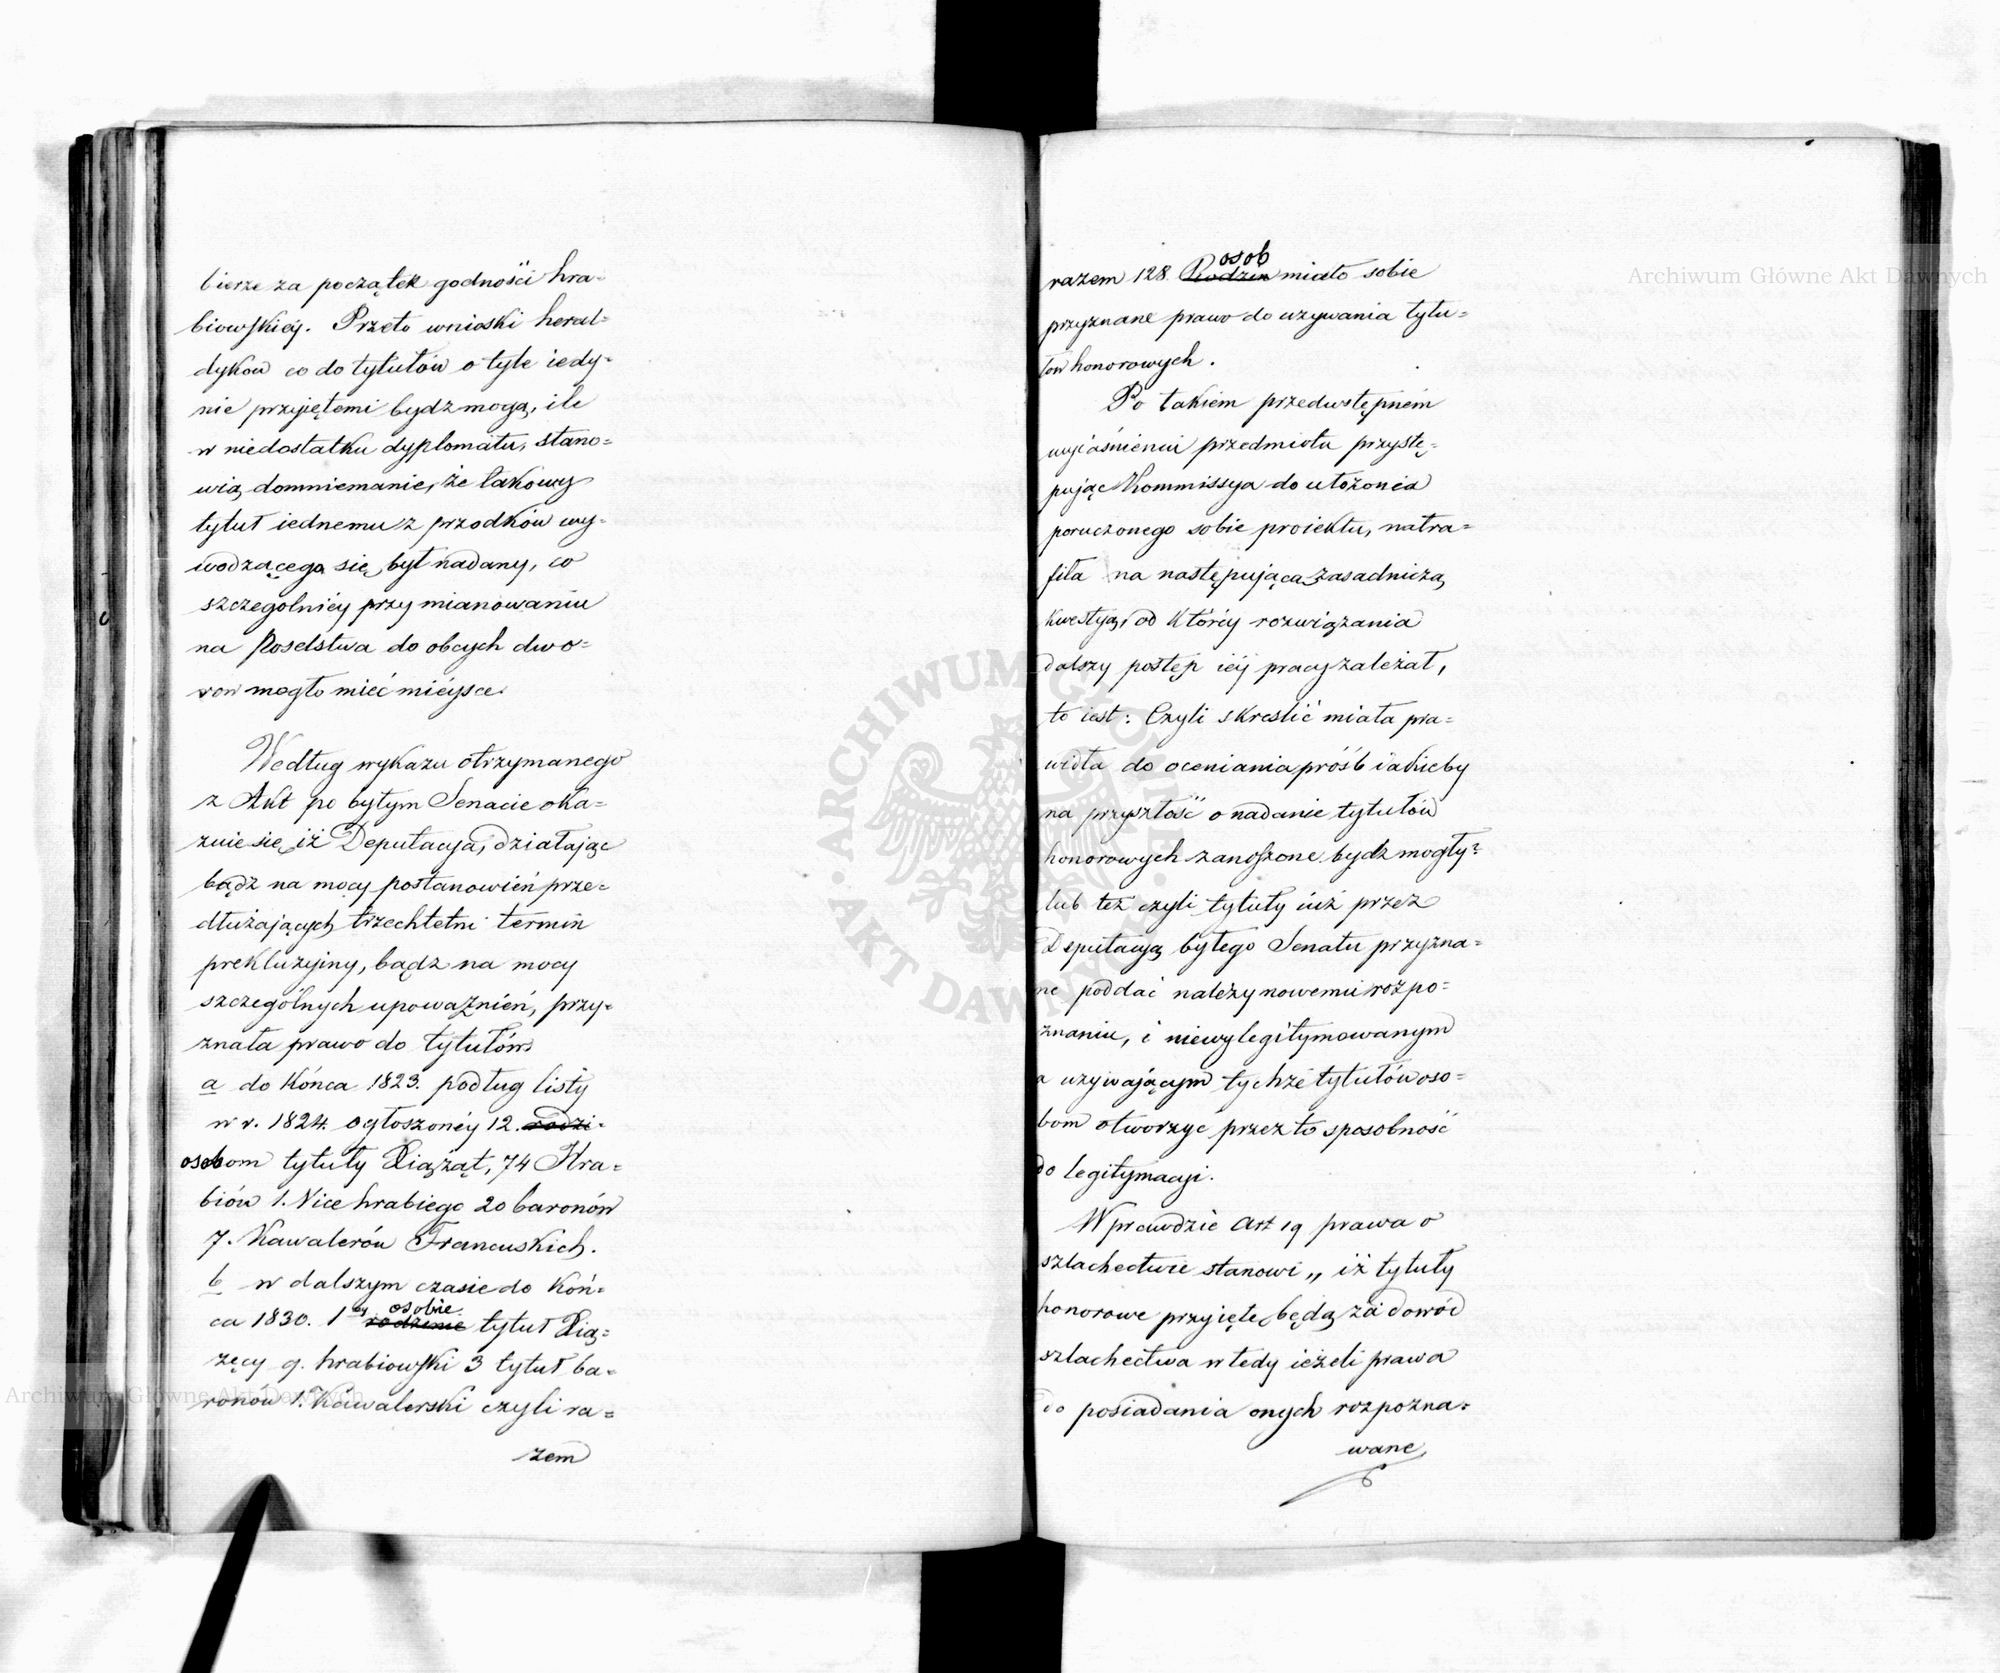 bierze za początek godności hra=
biowskiéy. Przeto wnioski heral=
dyków co do tytułów o tyle iedy=
nie przyiętemi bydz mogą, ile
w niedostatku dyplomatu, stano=
wią domniemanie, że takowy
tytuł iednemu z przodków wy=
wodzącego się był nadany, co
szczególniéy przy mianowaniu
na Poselstwa do obcych dwo=
row mogło mieć mieysce.
Według wykazu otrzymanego
z Akt po byłym Senacie oka=
zuie się, iż Deputacya, działając
bądź na mocy postanowień prze=
dłużających trzechletni termin
prekluzyiny, bądz na mocy
szczególnych upoważnień, przy=
znała prawo do tytułów:
a do końca 1823. podług listy
w r. 1824. ogłoszonéy 12. rodzi=
osobom tytuły Xiążąt, 74 Hra=
biów 1. Vice hrabiego 20 baronów
7. Kawalerów Francuskich.
b w dalszym czasie do koń=
osobie
ca 1830. 1ey rodzinie tytuł Xią=
żęcy 9. hrabiowski 3 tytuł ba=
ronów 1. Kawalerski czyli ra=
zem
osob
razem 128. Rodzin miało sobie
przyznane prawo do używania tytu=
łow honorowych.
Po takiem przedwstępném
wyiaśnieniu przedmiotu przystę=
pując Kommissya do ułożenia
poruczonego sobie proiektu, natra=
fiła na następującą zasadniczą
kwestyą, od któréy rozwiązania
dalszy postęp iéy pracy zależał,
to iest: Czyli skreślić miała pra=
widła do oceniania próśb iakieby
na przyszłość o nadanie tytułów
honorowych zanoszone bydz mogły?
lub też czyli tytuły iuż przez
Deputacyą byłego Senatu przyzna=
ne poddać należy nowemu rozpo=
znaniu, i niewylegitymowanym
a używającym tychże tytułów oso=
bom otworzyć przez to sposobność
do legitymacyi.
Wprawdzie Art 19 prawa o
szlachectwie stanowi „ iż tytuły
honorowe przyięte będą za dowód
szlachectwa wtedy ieżeli prawa
do posiadania onych rozpozna=
wane
Archiwum Główne Akt Dawnych
Archiwum Główne Akt Dawnych
ARCHIWUM GŁÓWNE AKT DAWNYCH